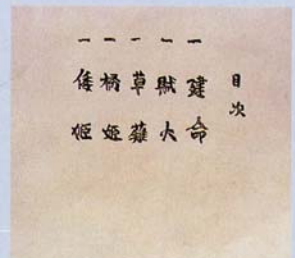 目次
一 建命
一 賊火
一 草薙
一 橘姫
一 倭姫